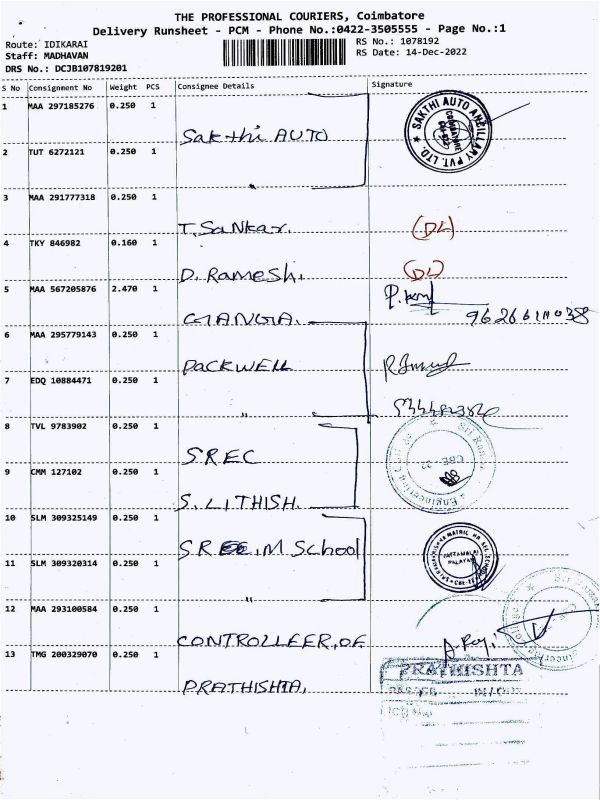 THE PROFESSIONAL COURIERS, Coimbatore
Delivery Runsheet - PCM - Phone No.:0422-3505555 - Page No.:1
Route: IDIKARAI
Staff: MADHAVAN
DRS No.: DCJB107819201
RS No.: 1078192
RS Date: 14-Dec-2022
S No Consignment No Weight PCS Consignee Details Signature
1 MAA 297185276 0.250 1
Sakthi AUTO
SAKTHI AUTO ANCILLARY PVT. LTD.
2 TUT 6272121 0.250 1
"
3 MAA 291777318 0.250 1
T. SaNkar. (DL)
4 TKY 846982 0.160 1
D. Ramesh. (DL)
5 MAA 567205876 2.470 1
GANGA.
6 MAA 295779143 0.250 1
PACKWELL
7 EDQ 10884471 0.250 1
"
8 TVL 9783902 0.250 1
SREC
9 CMM 127102 0.250 1
S. LITHISH.
10 SLM 309325149 0.250 1
SREE.M School
11 SLM 309320314 0.250 1
"
12 MAA 293100584 0.250 1
CONTROLLEER.OF
13 TMG 200329070 0.250 1
PRATHISHTA
PRATHISHTA.